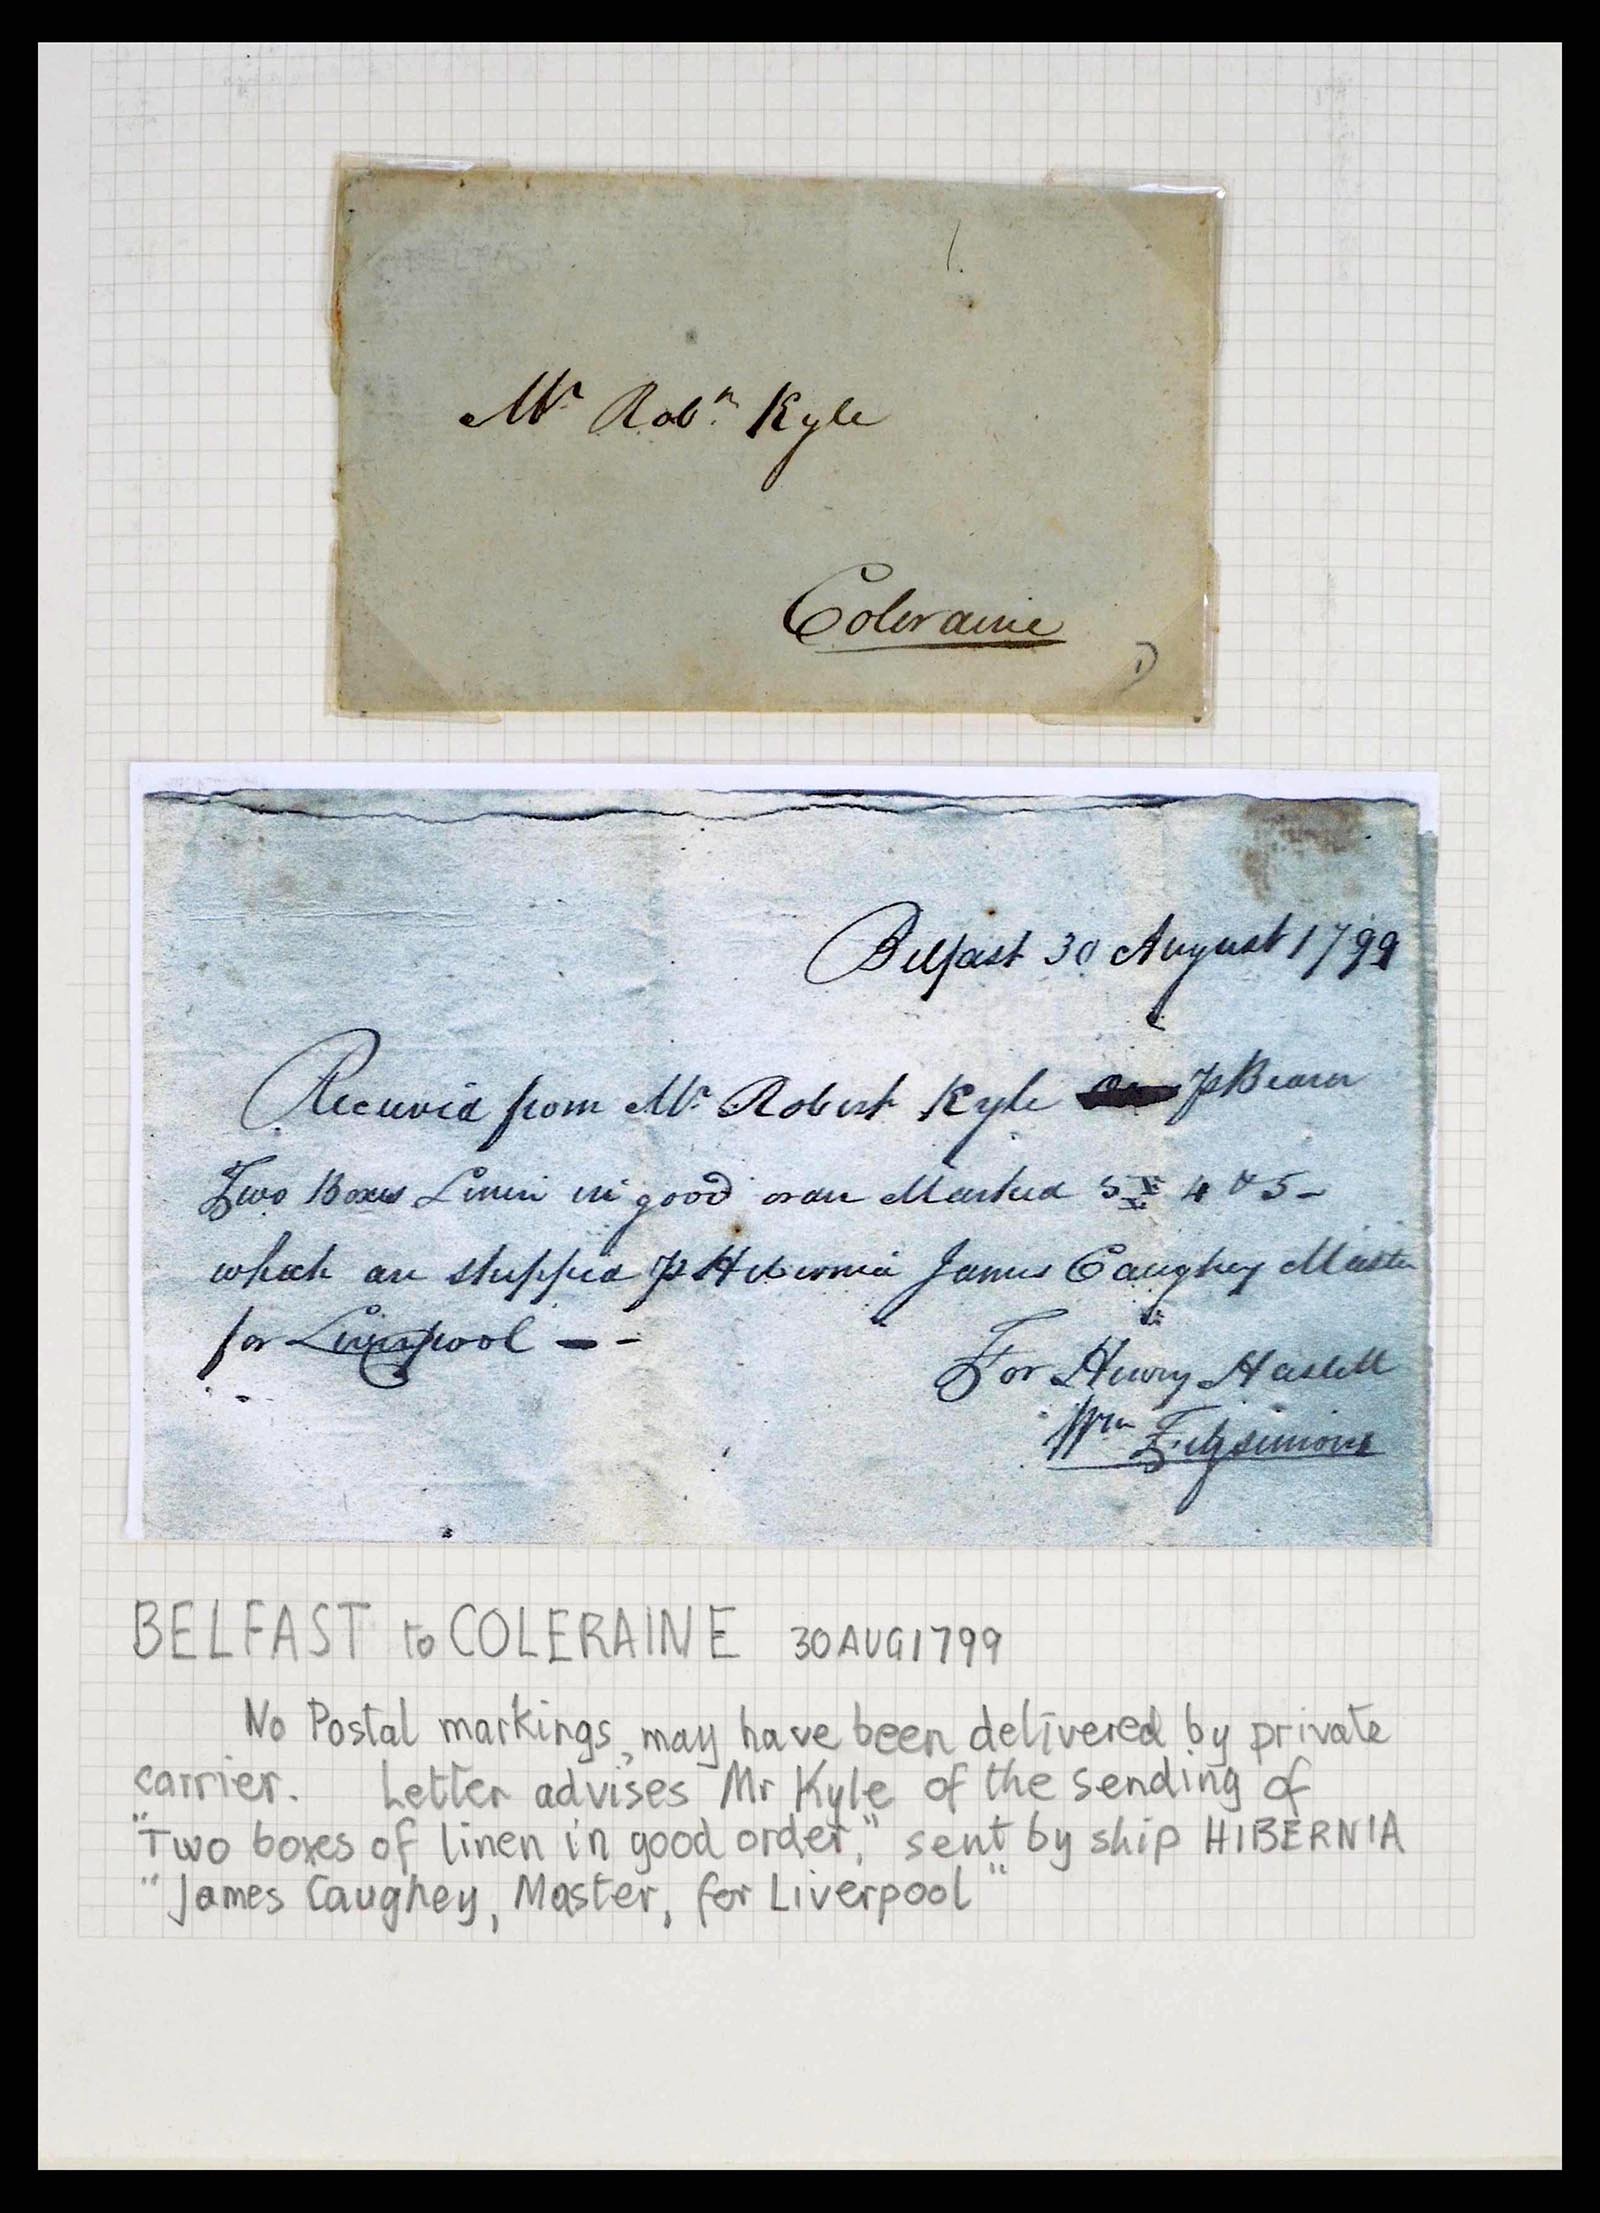 Mr Robn. Kyle
Coleraine
Belfast 30 August 1799
Received from Mr Robert Kyle ℘ Bearer
Two Boxes Linen in good order Marked 4 & 5 –
which are shipped ℘ Hibernia James Caughey Master
for Liverpool – –
For Henry Haslett
Wm Fitzsimons
BELFAST to COLERAINE 30 AUG 1799
No Postal markings, may have been delivered by private
carrier. Letter advises Mr Kyle of the sending of
"Two boxes of linen in good order," sent by ship HIBERNIA
"James Caughey, Master, for Liverpool"